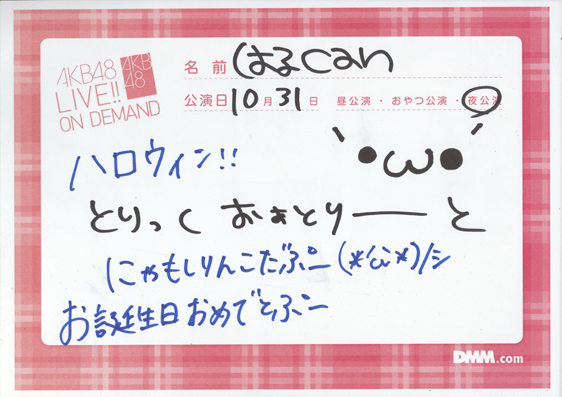 AKB48
LIVE!!
ON DEMAND
AKB
48
名前 はるcan
公演日 10月31日 昼公演・おやつ公演・夜公演
ハロウィン!!
`●ω●´
とりっく おぁとりーと
にゃもしりんこだぷー(*'ω'*)/シ
お誕生日おめでとぷー
DMM.com